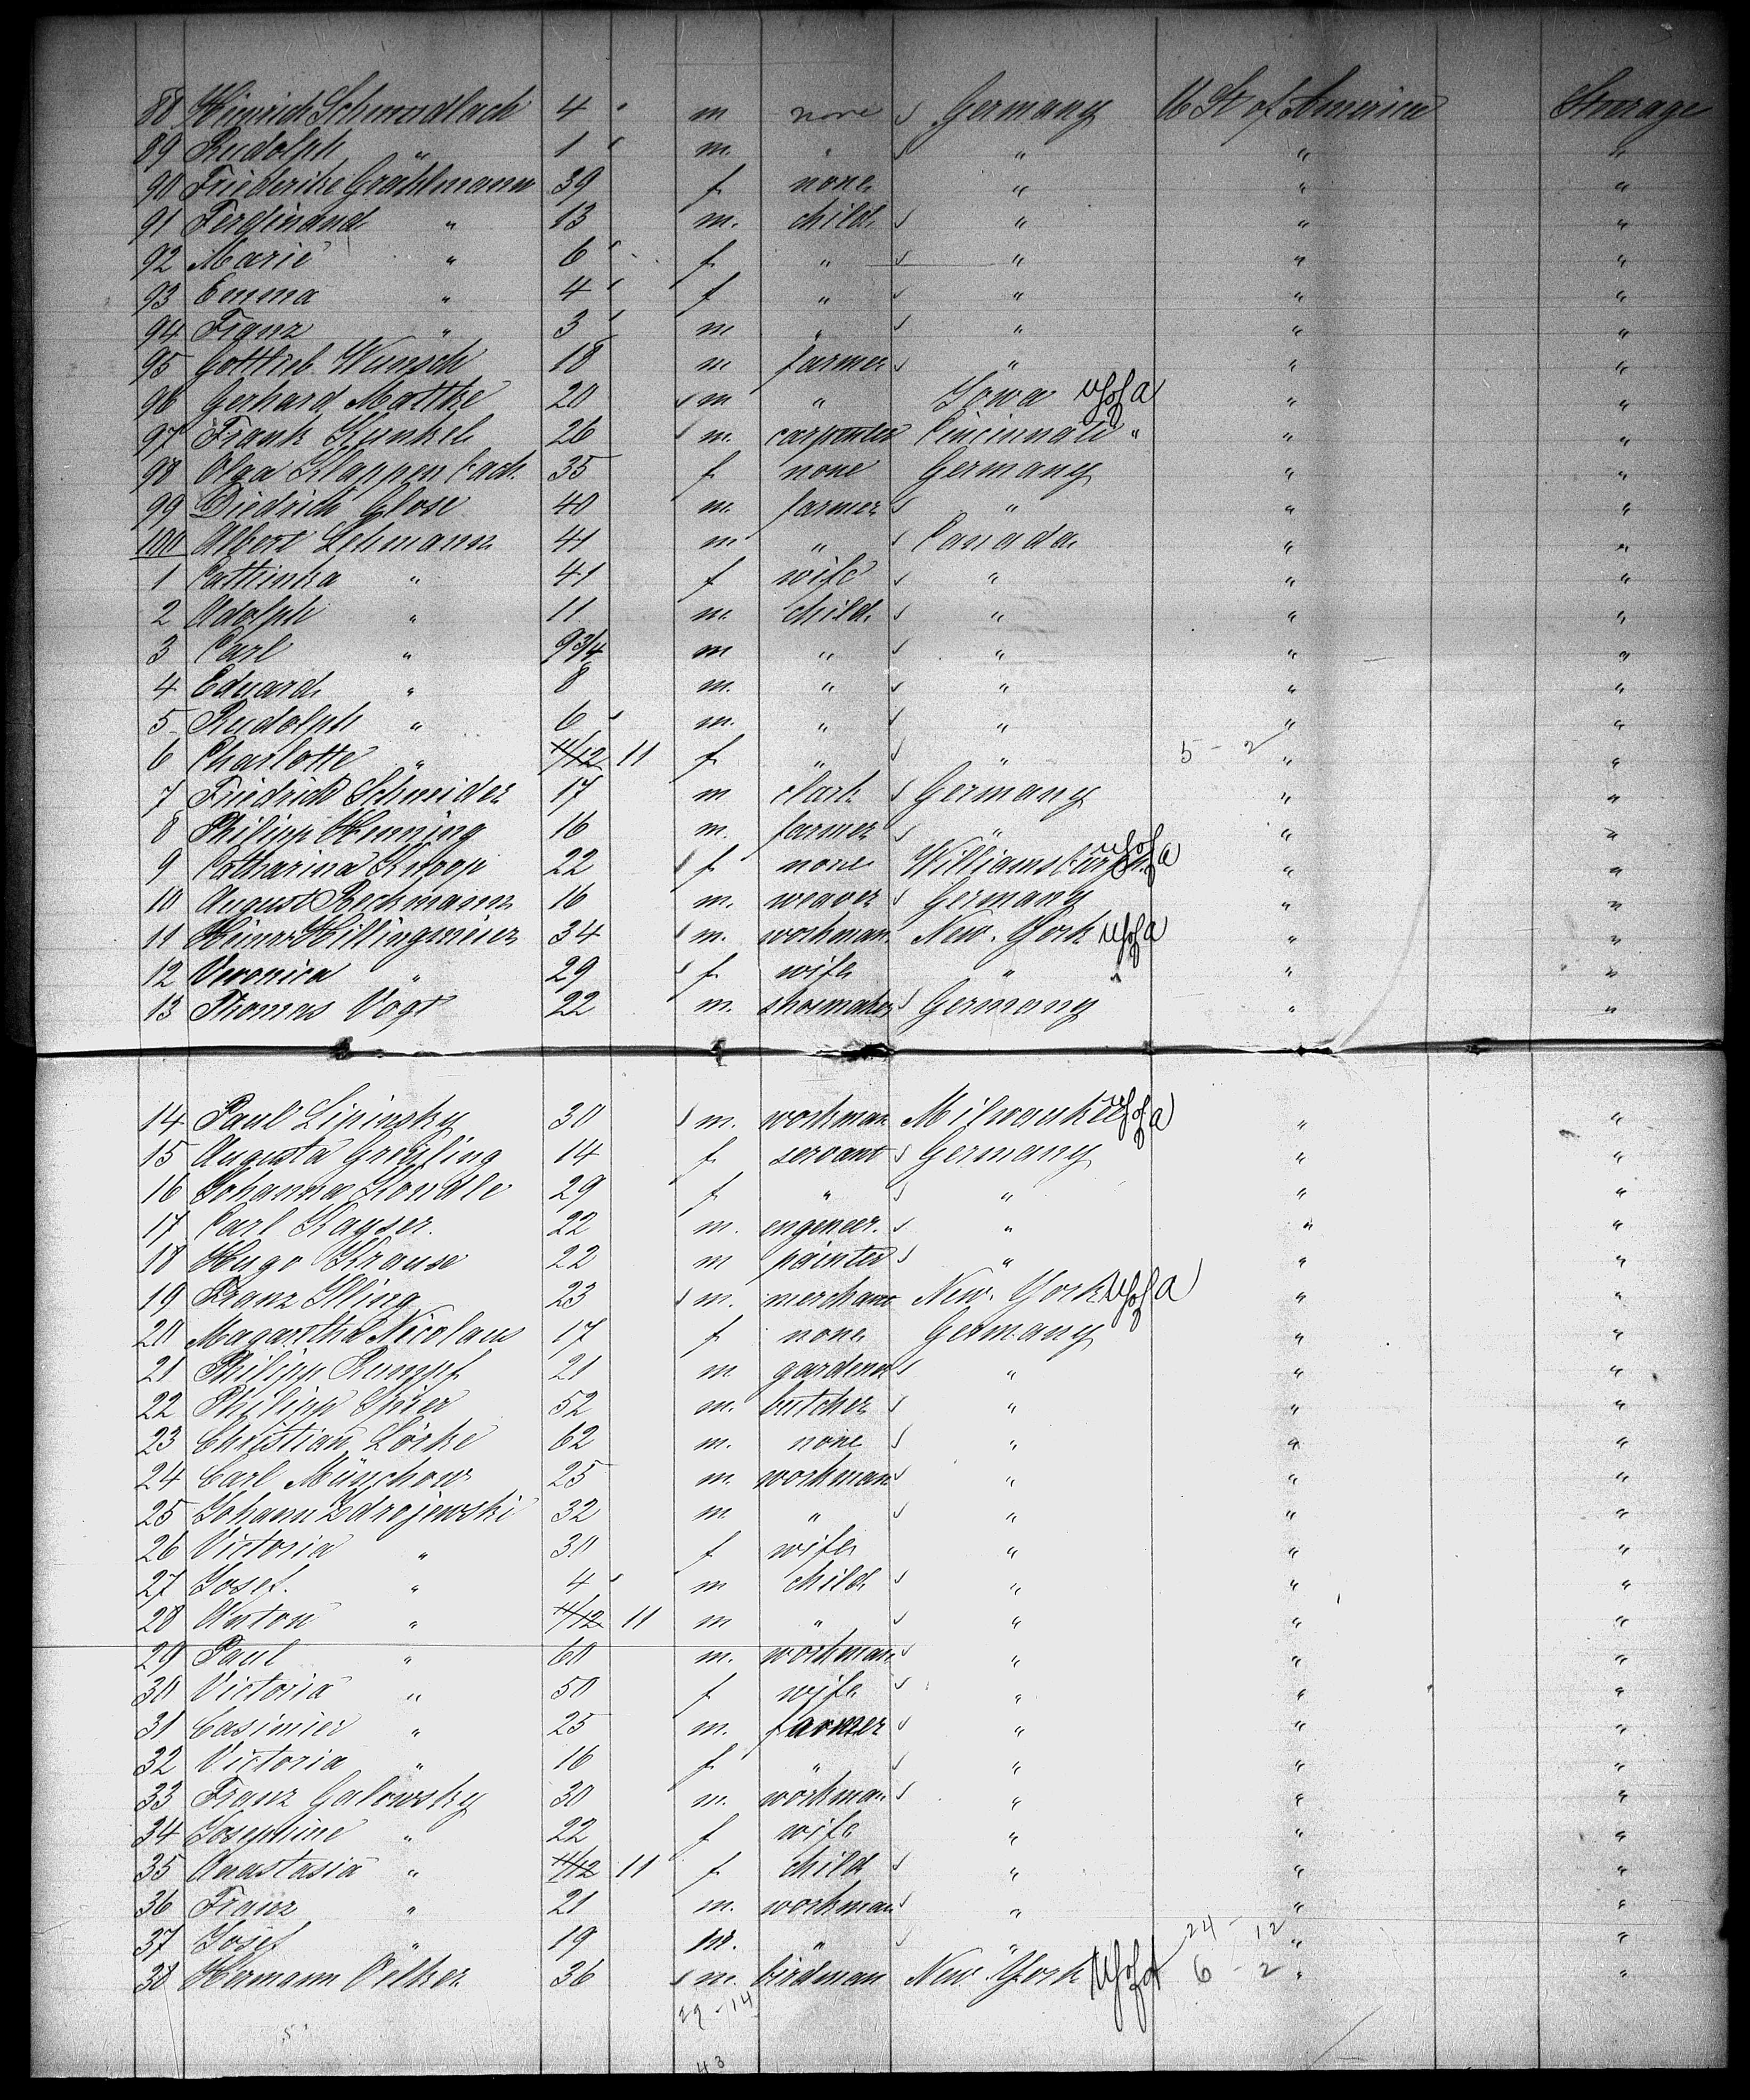 88 Heinrich Schwerdlach 4 m none Germany U St of America Steerage
89 Rudolph " 1 m. " " " "
90 Friederike Grählmann 39 f none " " "
91 Ferdinand " 13 m. child " " "
92 Marie " 6 f " " " "
93 Emma " 4 f " " " "
94 Franz " 3 m " " " "
95 Gottlieb Wunsch 18 m farmer " " "
96 Gerhard Mattke 20 m " Iowa USofA " "
97 Frank Kunkel 26 m. carpenter Cincinnati " " "
98 Olga Klappenbach 35 f none Germany " "
99 Diedrich Glose 40 m. farmer " " "
100 Albert Lehmann 41 m " Canada " "
1 Cathinka " 41 f wife " " "
2 Adolph " 11 m. child " " "
3 Carl " 9 3/4 m " " " "
4 Eduard " 8 m. " " " "
5 Rudolph " 6 m. " " " "
6 Charlotte " 11/12 11 f " " 5 - 2 " "
7 Friedrich Schneider 17 m clark Germany " "
8 Philipp Henning 16 m. farmer " " "
9 Catharina Knoop 22 f none Williamsburgh USofA " "
10 August Beckmann 16 m. weaver Germany " "
11 Heinr Hillingmeier 34 m. workman New York USofA " "
12 Veronica " 29 f wife " " " "
13 Thomas Vogt 22 m. shoemaker Germany " "
14 Paul Lipinsky 30 m. workman Milwaukee USofA " "
15 Augusta Greifling 14 f servant Germany " "
16 Johanna Kondle 29 f " " " "
17 Carl Kayser. 22 m. engeneer. " " "
18 Hugo Krause 22 m painter " " "
19 Franz Illing 23 m. merchant New York USofA " "
20 Magaretha Nicolaus 17 f none Germany " "
21 Philipp Rumpf 21 m gardener " " "
22 Philipp Spier 52 m. butcher " " "
23 Christian Lörke 62 m. none " " "
24 Carl Münchow 25 m. workman " " "
25 Johann Zdrojewski 32 m " " " "
26 Victoria " 30 f wife " " "
27 Josef. " 4 m child " " "
28 Anton " 11/12 11 m " " " "
29 Paul " 60 m. workman " " "
30 Victoria " 50 f wife " " "
31 Casimier " 25 m. farmer " " "
32 Victoria " 16 f " " " "
33 Franz Galowsky 30 m. workman " " "
34 Josephine " 22 f wife " " "
35 Anastasia " 11/12 11 f child " " "
36 Franz " 21 m. workman " " "
37 Josef " 19 m. " " 24 - 12 " "
38 Hermann Oelker 36 m. birdman New York USofA 6 - 2 " "
29 - 14
43